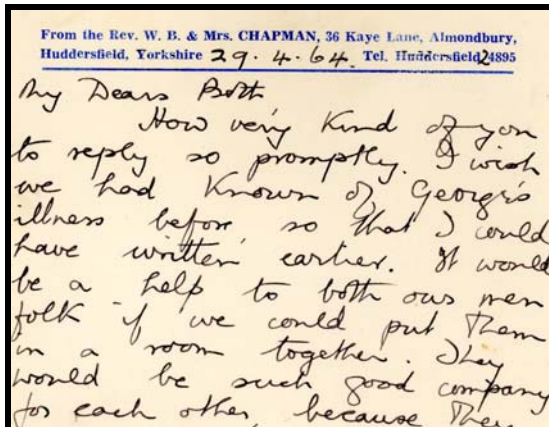 From the Rev. W. B. & Mrs. CHAPMAN, 36 Kaye Lane, Almondbury,
Huddersfield, Yorkshire 29.4.64. Tel. Huddersfield 24895
My Dears Both
How very Kind of you
to reply so promptly. I wish
we had Known of George's
illness before so that I could
have written earlier. It would
be a help to both our men
folk if we could put them
in a room together. They
would be such good company
for each other, because they